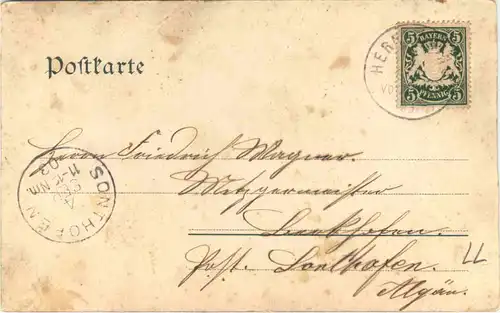 Postkarte
5 BAYERN 5
5 PFENNIG 5
HER
Herrn Friedrich Wagner
Metzgermeister
Post. Sonthofen.
Algäu.
LL
SONTHOFEN
4
11 Nm
03